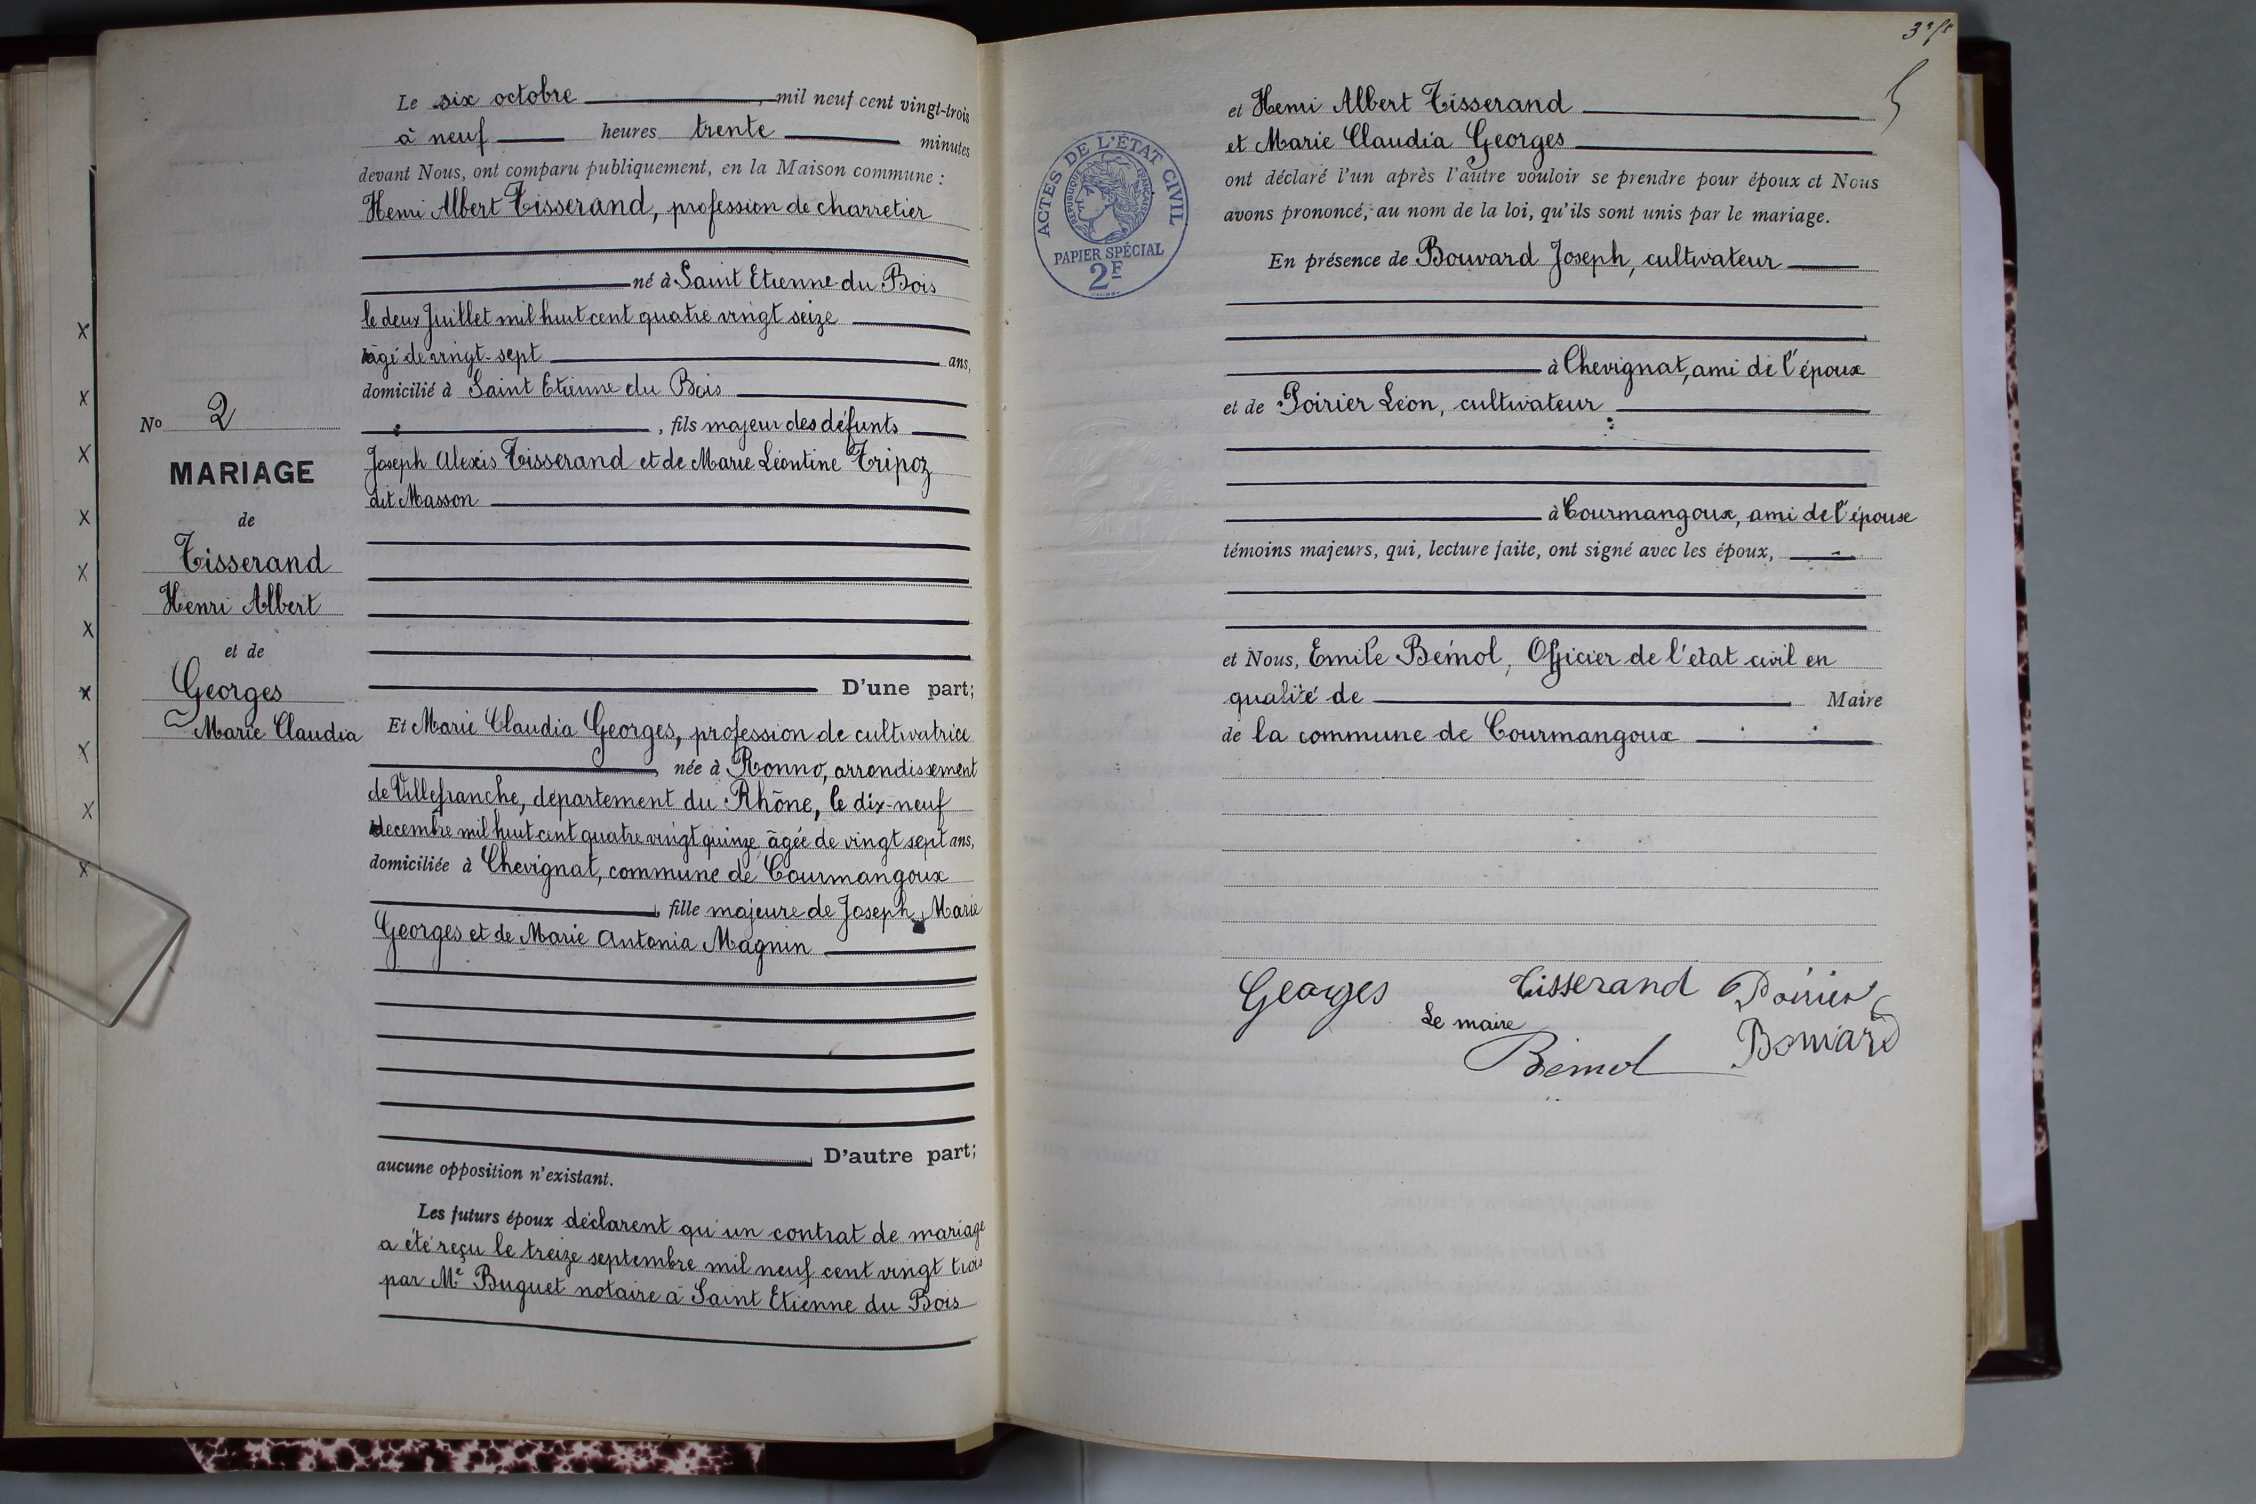 Le six octobre, mil neuf cent vingt-trois
à neuf heures trente minutes
devant Nous, ont comparu publiquement, en la Maison commune :
Henri Albert Tisserand, profession de charretier
né à Saint Etienne du Bois
le deux Juillet mil huit cent quatre vingt seize
âgé de vingt-sept ans,
domicilié à Saint Etienne du Bois
, fils majeur des défunts
Joseph Alexis Tisserand et de Marie Léontine Tripoz
dit Masson
D'une part;
No 2
MARIAGE
de
Tisserand
Henri Albert
et de
Georges
Marie Claudia
Et Marie Claudia Georges, profession de cultivatrice
, née à Ronno, arrondissement
de Villefranche, département du Rhône, le dix-neuf
decembre mil huit cent quatre vingt quinze âgée de vingt sept ans,
domiciliée à Chevignat, commune de Courmangoux
, fille majeure de Joseph Marie
Georges et de Marie Antonia Magnin
D'autre part;
aucune opposition n'existant.
Les futurs époux déclarent qu'un contrat de mariage
a été reçu le treize septembre mil neuf cent vingt trois
par Me Buguet notaire à Saint Etienne du Bois
ACTES DE L'ÉTAT CIVIL
RÉPUBLIQUE FRANÇAISE
PAPIER SPÉCIAL
2F
et Henri Albert Tisserand
et Marie Claudia Georges
ont déclaré l'un après l'autre vouloir se prendre pour époux et Nous
avons prononcé, au nom de la loi, qu'ils sont unis par le mariage.
En présence de Bouvard Joseph, cultivateur
à Chevignat, ami de l'époux
et de Poirier Léon, cultivateur
à Courmangoux, ami de l'épouse
témoins majeurs, qui, lecture faite, ont signé avec les époux,
et Nous, Emile Bémol, Officier de l'etat civil en
qualité de Maire
de la commune de Courmangoux
Georges Tisserand Poirier
Le maire Bouvard
Bémol